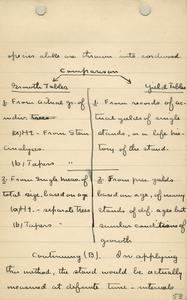 species alike are thrown into cordwood
Comparison
Growth Tables
Yield Tables
1. From actual gr. of
indiv. trees
(a) Ht - From Stem
Analyses.
(b) Tapers "
2. From single meas. of
total size, based on age
(a) Ht. - separate trees
(b) Tapers "
1. From records of ac-
tual yields of single
stands, or a life his-
tory of the stand.
2. From pres. yields
based on age, of many
stands of def. ages but
similar conditions of
growth
Continuing (B). In applying
this method, the stand would be actually
measured at definite time - intervals